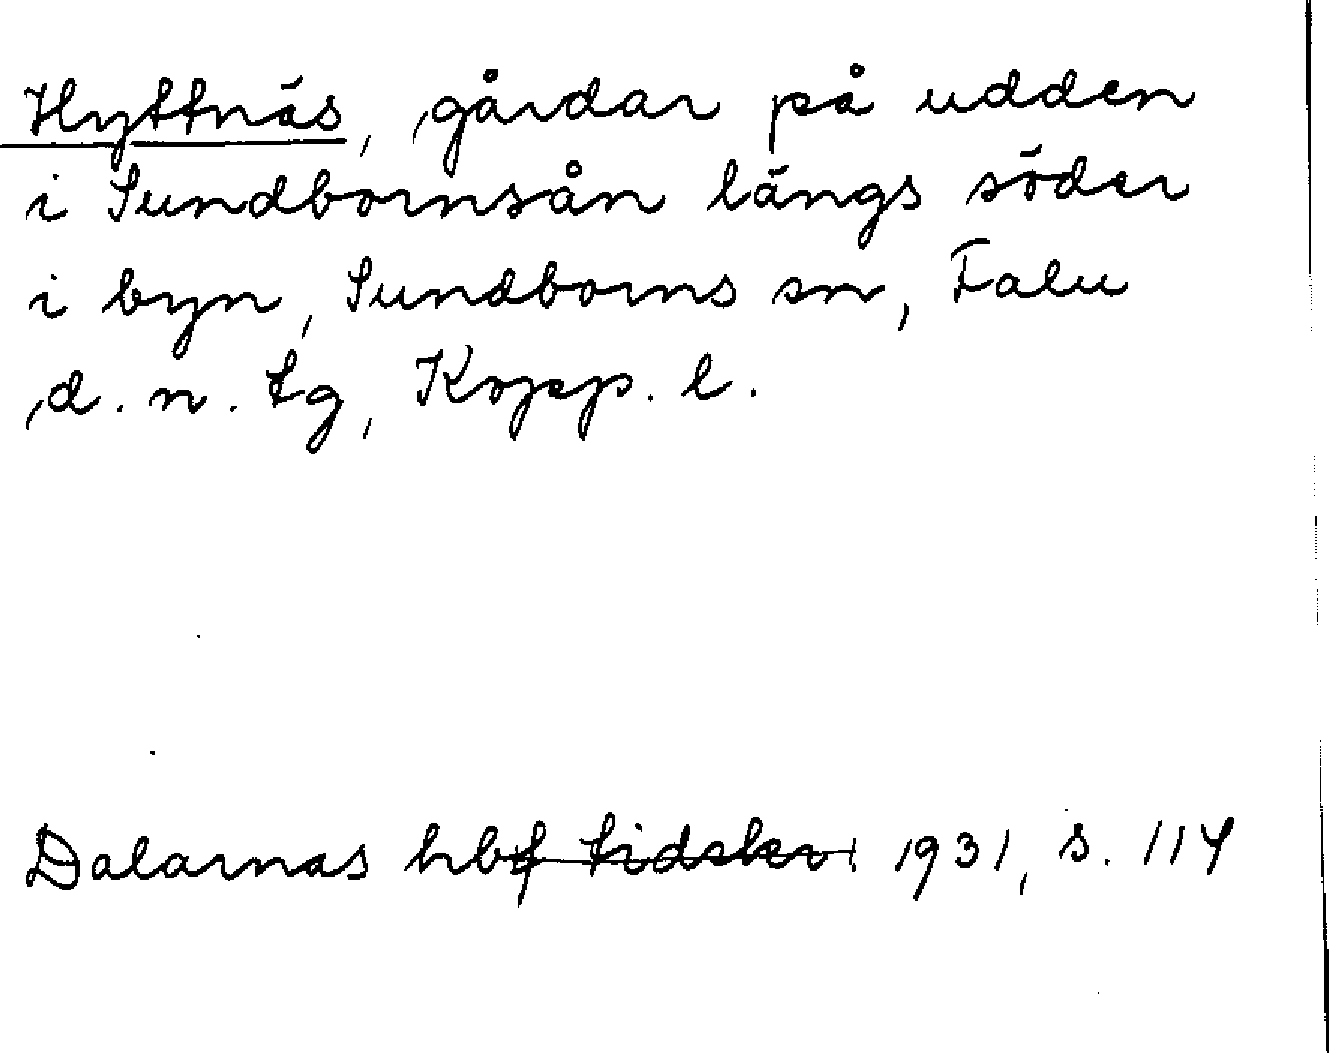 Hyttnäs, gårdar på udden
i Sundbornsån längs söder
i byn, Sundborns sn, Falu
d. n. tg, Kopp. l.
Dalarnas hbf tidskr. 1931, s. 114